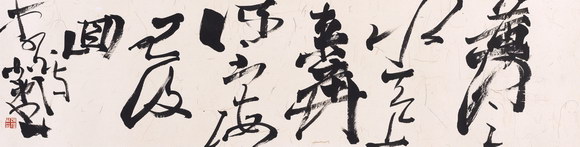 黄河之
水天上
来奔
流到海
不复
回
李白诗